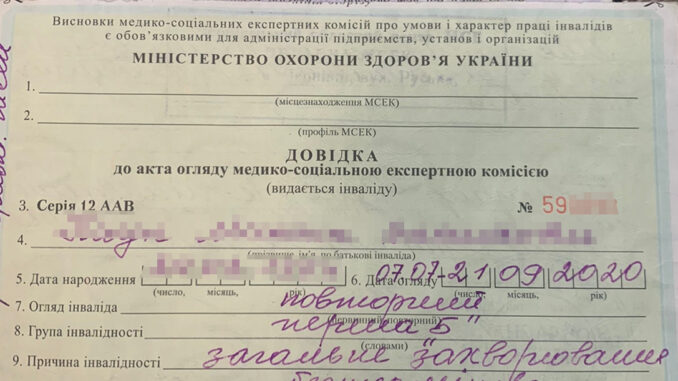 Висновки медико-соціальних експертних комісій про умови і характер праці інвалідів
є обов'язковими для адміністрації підприємств, установ і організацій
МІНІСТЕРСТВО ОХОРОНИ ЗДОРОВ'Я УКРАЇНИ
1.
(місцезнаходження МСЕК)
2.
(профіль МСЕК)
ДОВІДКА
до акта огляду медико-соціальною експертною комісією
(видається інваліду)
3. Серія 12 ААВ № 59
4.
(прізвище, ім'я, по батькові інваліда)
5. Дата народження 6. Дата огляду 07.07-21 09 2020
(число, місяць, рік) (число, місяць, рік)
7. Огляд інваліда повторний
(первинний, повторний)
8. Група інвалідності перша "Б"
(словами)
9. Причина інвалідності загальне захворювання